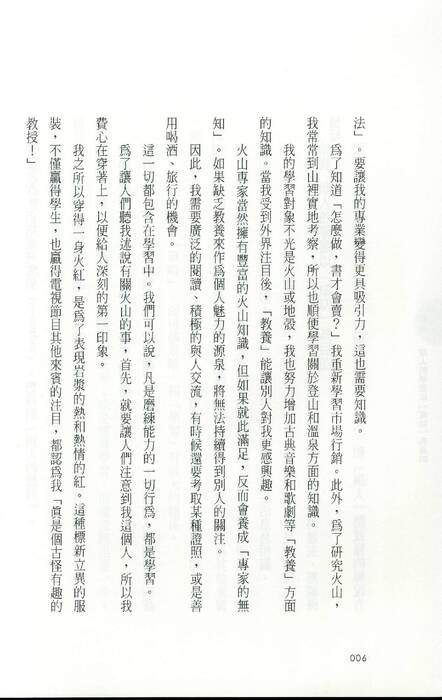 法」。要讓我的專業變得更具吸引力，這也需要知識。
為了知道「怎麼做，書才會賣？」我重新學習市場行銷。此外，為了研究火山，
我常常到山裡實地考察，所以也順便學習關於登山和溫泉方面的知識。
我的學習對象不光是火山或地殼，我也努力增加古典音樂和歌劇等「教養」方面
的知識。當我受到外界注目後，「教養」能讓別人對我更感興趣。
火山專家當然擁有豐富的火山知識，但如果就此滿足，反而會養成「專家的無
知」。如果缺乏教養來作為個人魅力的源泉，將無法持續得到別人的關注。
因此，我需要廣泛的閱讀、積極的與人交流，有時候還要考取某種證照，或是善
用喝酒、旅行的機會。
這一切都包含在學習中。我們可以說，凡是磨練能力的一切行為，都是學習。
為了讓人們聽我述說有關火山的事，首先，就要讓人們注意到我這個人，所以我
費心在穿著上，以便給人深刻的第一印象。
我之所以穿得一身火紅，是為了表現岩漿的熱和熱情的紅。這種標新立異的服
裝，不僅贏得學生，也贏得電視節目其他來賓的注目，都認為我「真是個古怪有趣的
教授！」
006